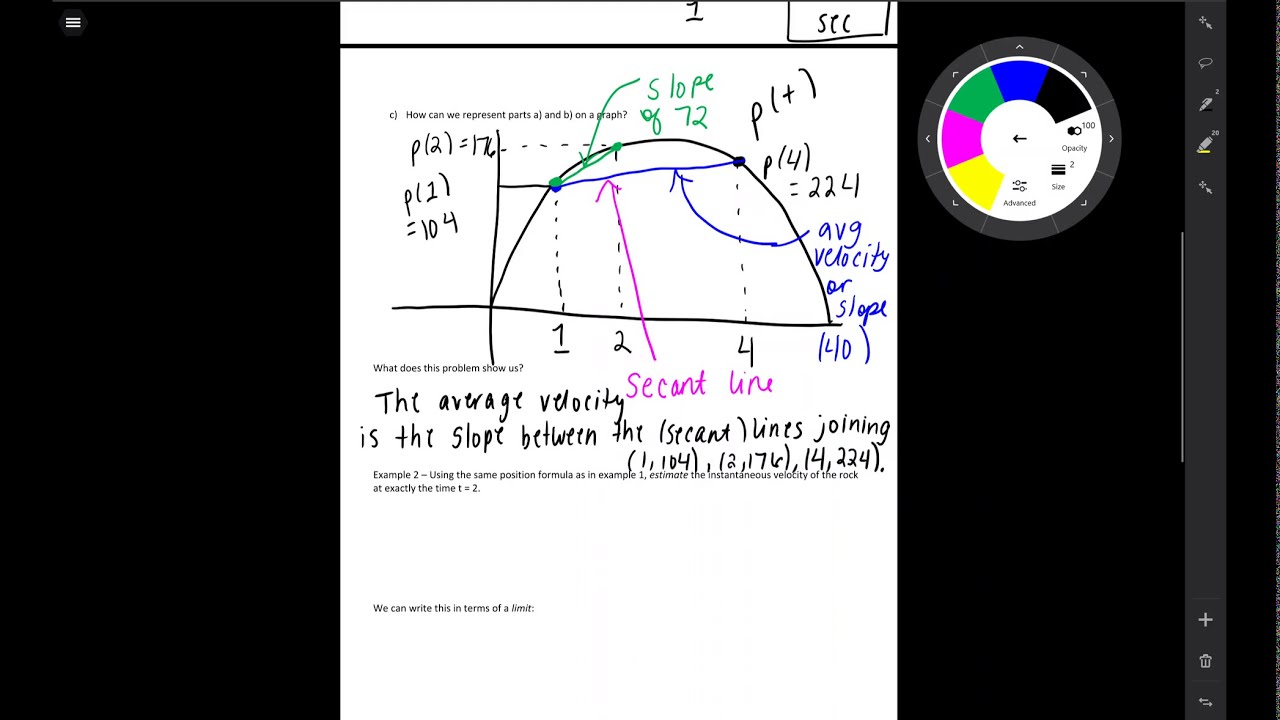 1
sec
c) How can we represent parts a) and b) on a graph?
slope
of 72
p(t)
p(2) = 176
p(1)
= 104
p(4)
= 224
avg
velocity
or
slope
(40)
1 2 4
What does this problem show us?
Secant line
The average velocity
is the slope between the (secant) lines joining
(1,104), (2,176), (4,224).
Example 2 – Using the same position formula as in example 1, estimate the instantaneous velocity of the rock
at exactly the time t = 2.
We can write this in terms of a limit:
100
Opacity
2
Size
Advanced
2
20